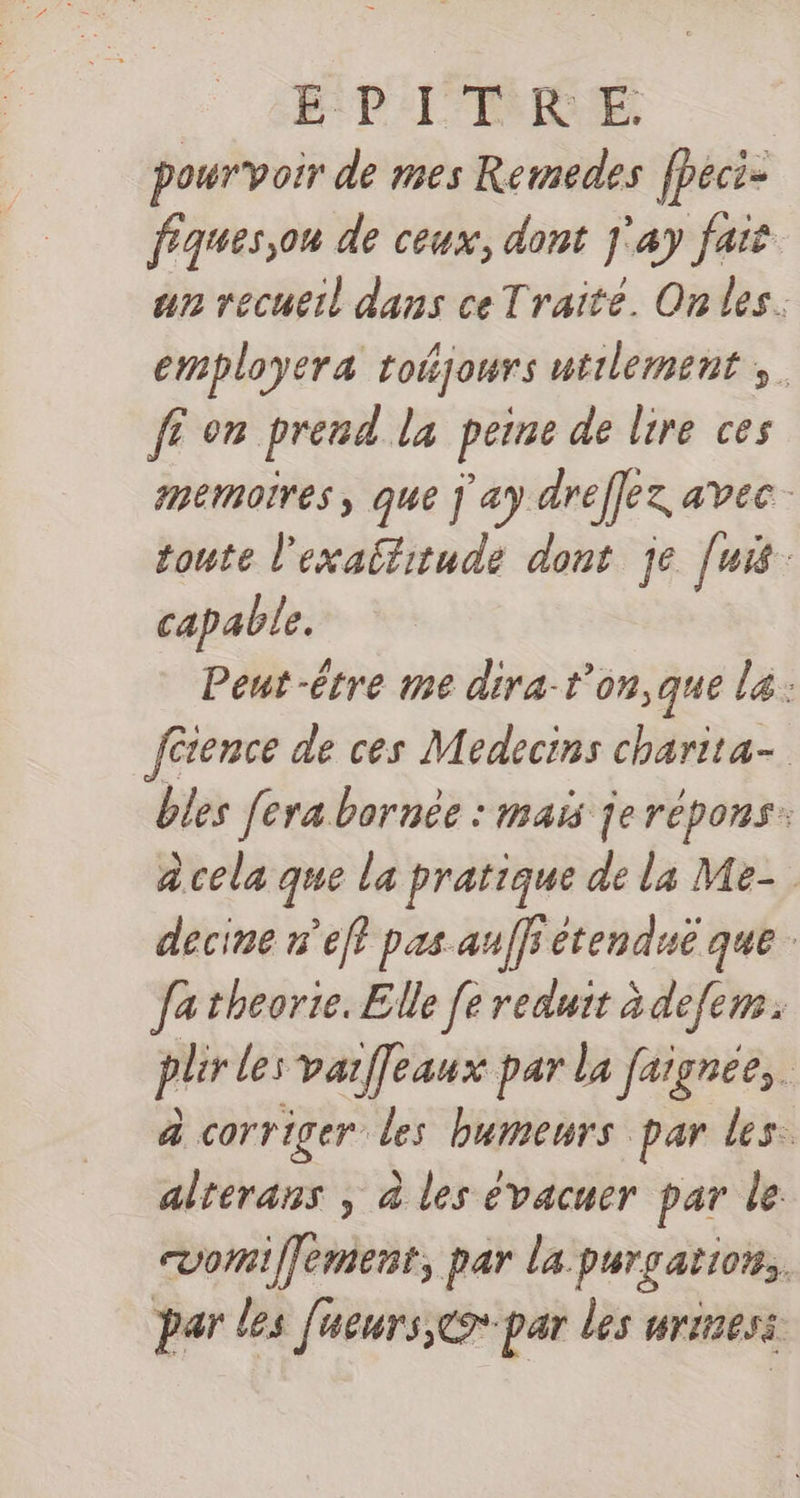 EPITRE.
pourvoir de mes Remedes ſpeci-
fiques, ou de ceux, dont j'ay fait
un recueil dans ce Traité. On les
employera toûjours utilement,
ſi on prend la peine de lire ces
memoires, que j'ay dreſſez avec
toute l'exactitude dont je ſuis
capable.
Peut-être me dira-t'on, que la
ſcience de ces Medecins charita-
bles ſera bornée : mais je répons
à cela que la pratique de la Me-
decine n'eſt pas auſſi étenduë que
ſa theorie. Elle ſe reduit à deſem-
plir les vaiſſeaux par la ſaignée,
à corriger les humeurs par les
alterans, à les évacuer par le
vomiſſement, par la purgation,
par les ſueurs, & par les urines: